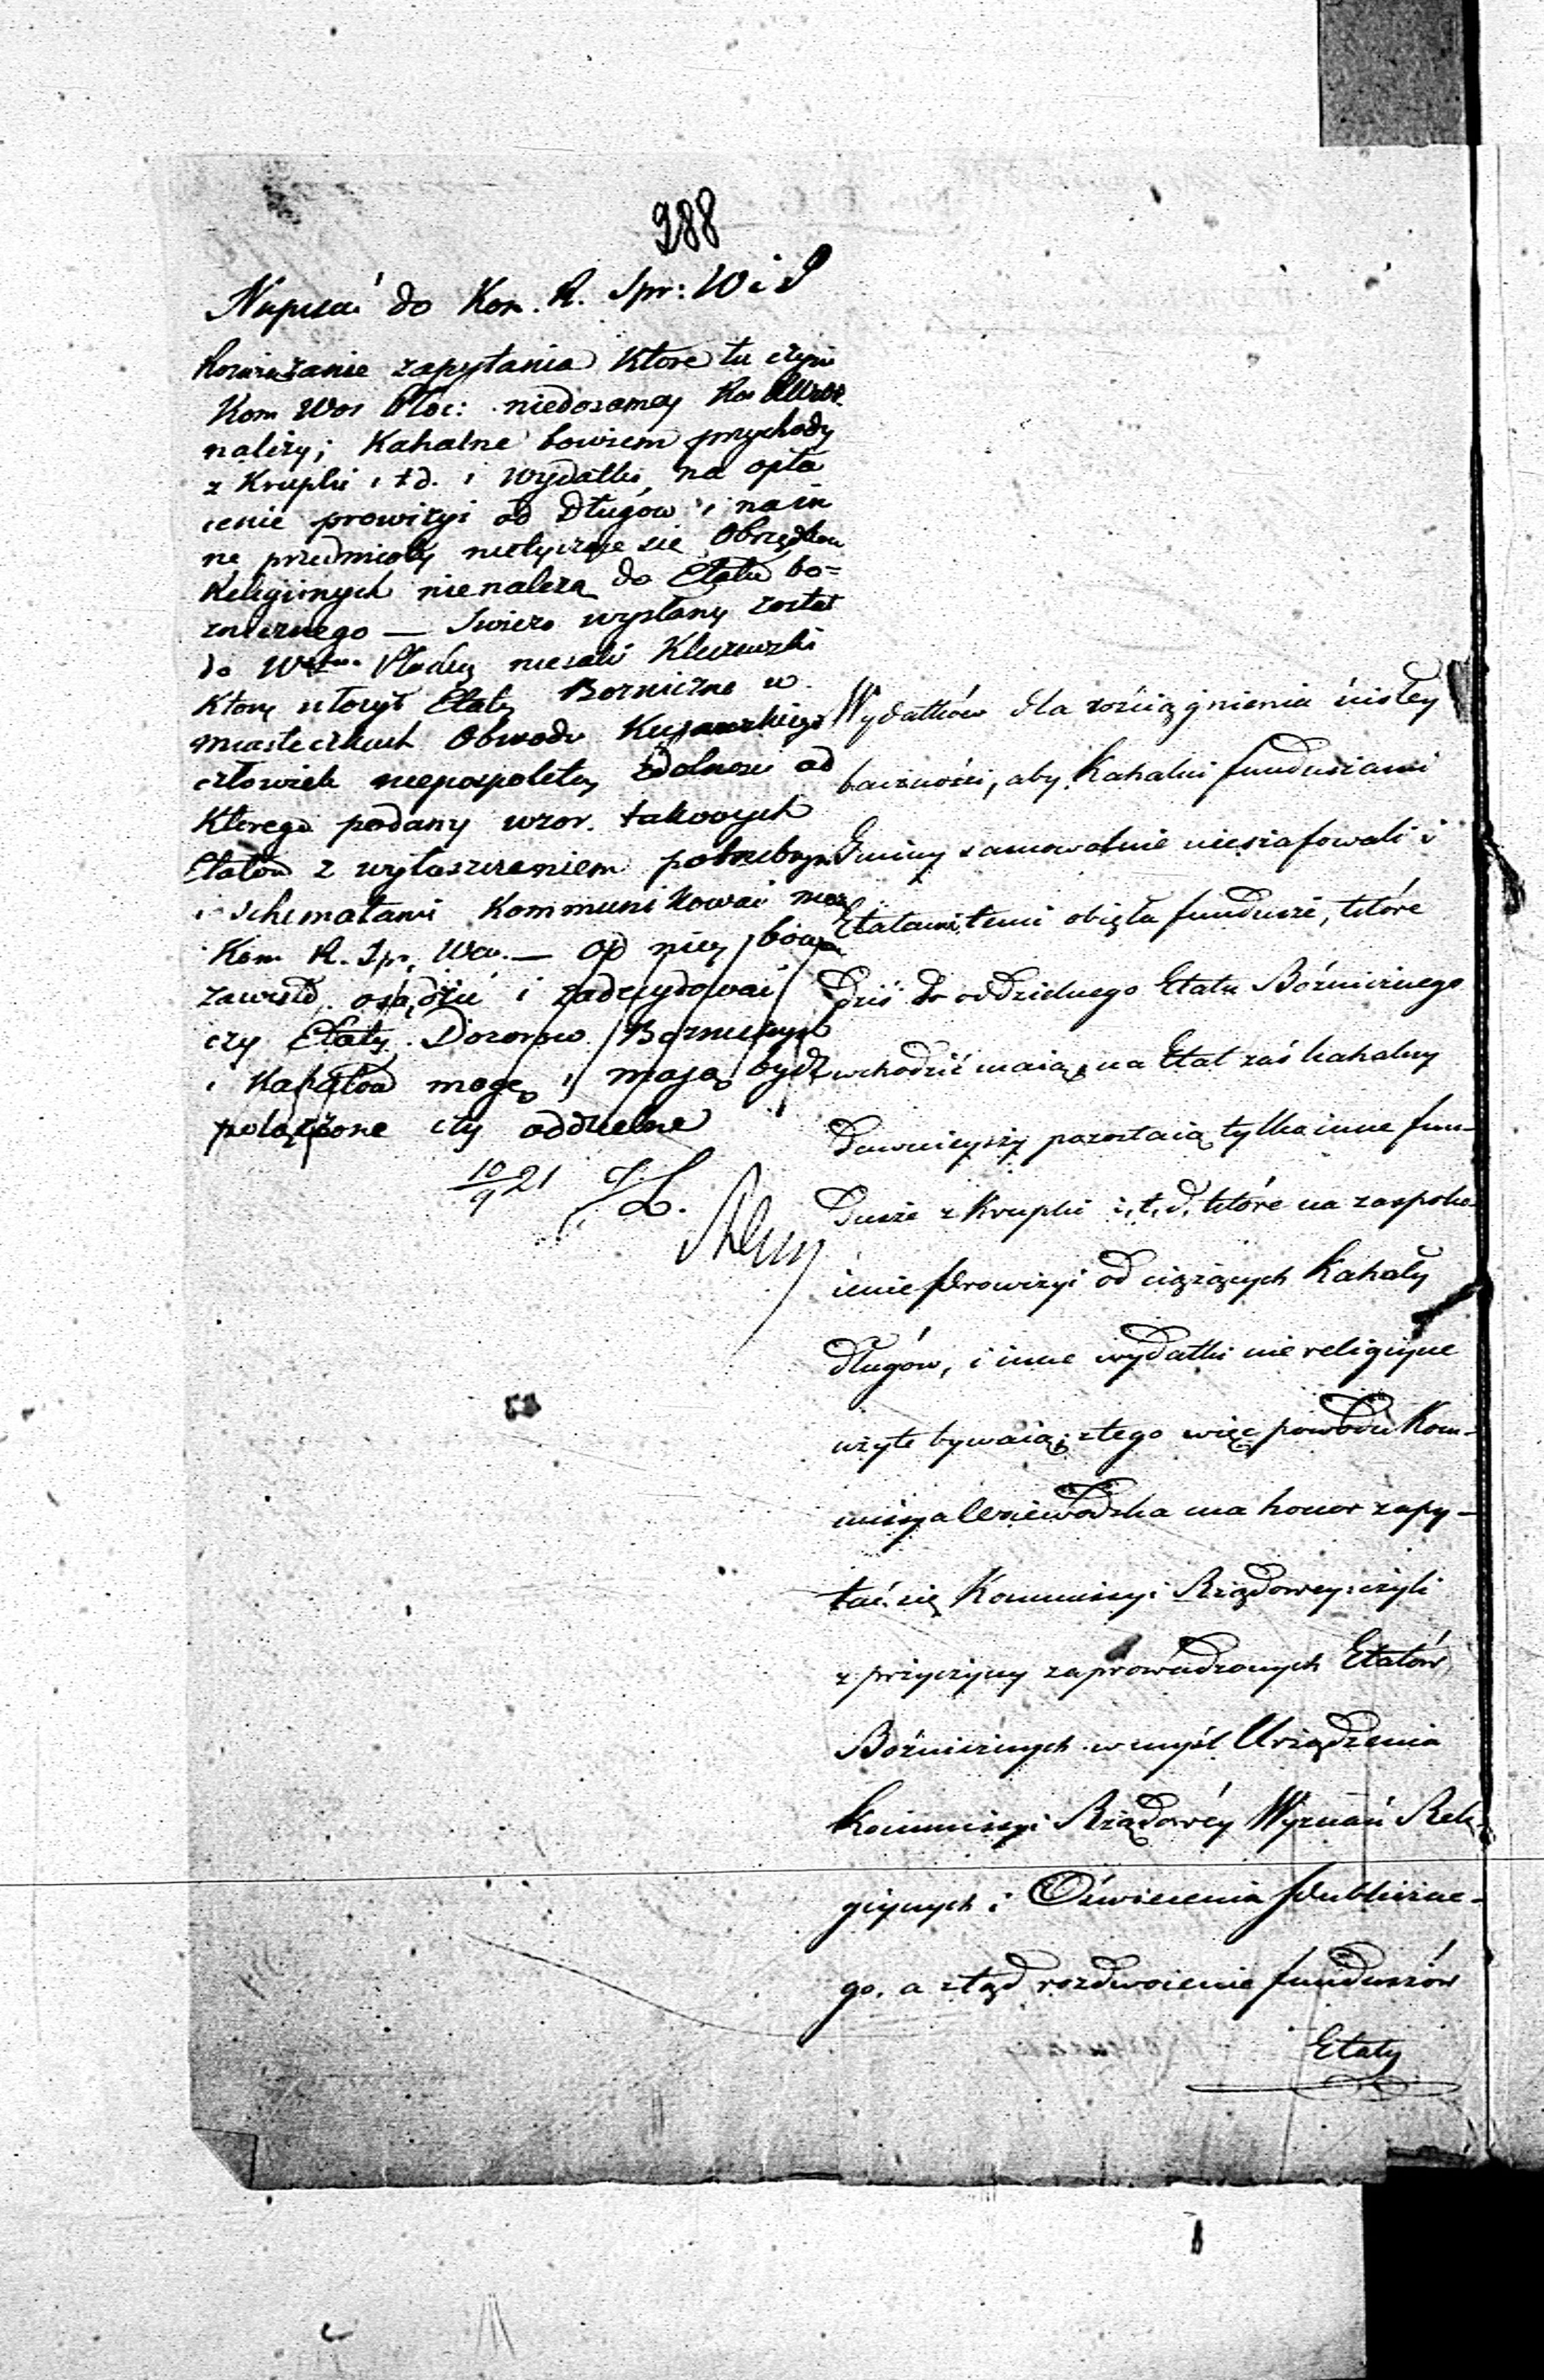 288
Napisać do Kom. R. Spr: W i P
Rozwiązanie zapytania które tu czyni
Kom Woi Płoc: niedosamey
należy; Kahalne bowiem przychody
z Krupki i t d. i wydatki na opła
cenie prowizyi od Długów i na in
ne przedmioty nietyczące się Obrzędków
Religijnych nienależą do Etatu bo=
znicznego — Swiezo wysłany został
do Płockiego
który ułożył Etaty Bozniczne w
miasteczkach Obwodu Kujawskiego
człowiek niepospolitey zdolnosci od
którego podany wzor. takowych
Etatów z wyłuszczeniem potrzebnym
i schematami kommunikować może
Kom R. Spr. We. — od niey bowiem
zawisło osądzić i zadecydować
czy Etaty Dozorow Bozniczych
i Kahałow mogą i mają bydź
połączone czy oddzielne
10/9 21
Wydatków dla rościągnienia ścisłey
baczności, aby Kahalni funduszami
Gminy samowolnie nieszafowali i
Etatami temi obięła fundusze, które
dziś do oddzielnego Etatu Bóżnicznego
wchodzić maią, na Etat zaś kahalny
dawnieyszy pozostaią tylko inne fun-
dusze z Krupki i, t, d, które na zaspoko-
ienie Prowizyi od ciążących Kahały
długów, i inne wydatki nie religijne
użyte bywaią; z tego więc powodu Kom-
missya Woiewódzka ma honor zapy-
tać się Kommissyi Rządowey: czyli
z przyczyny zaprowadzonych Etatów
Bóżnicznych w myśl Urządzenia
Kommissyi Rządowéy Wyznań Reli-
giynych i Oświecenia Publiczne-
go, a ztąd rozdwoienie funduszów
Etaty